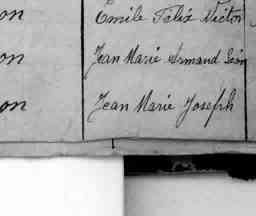 on Emile Félix Victor
on Jean Marie Armand Léon
on Jean Marie Joseph